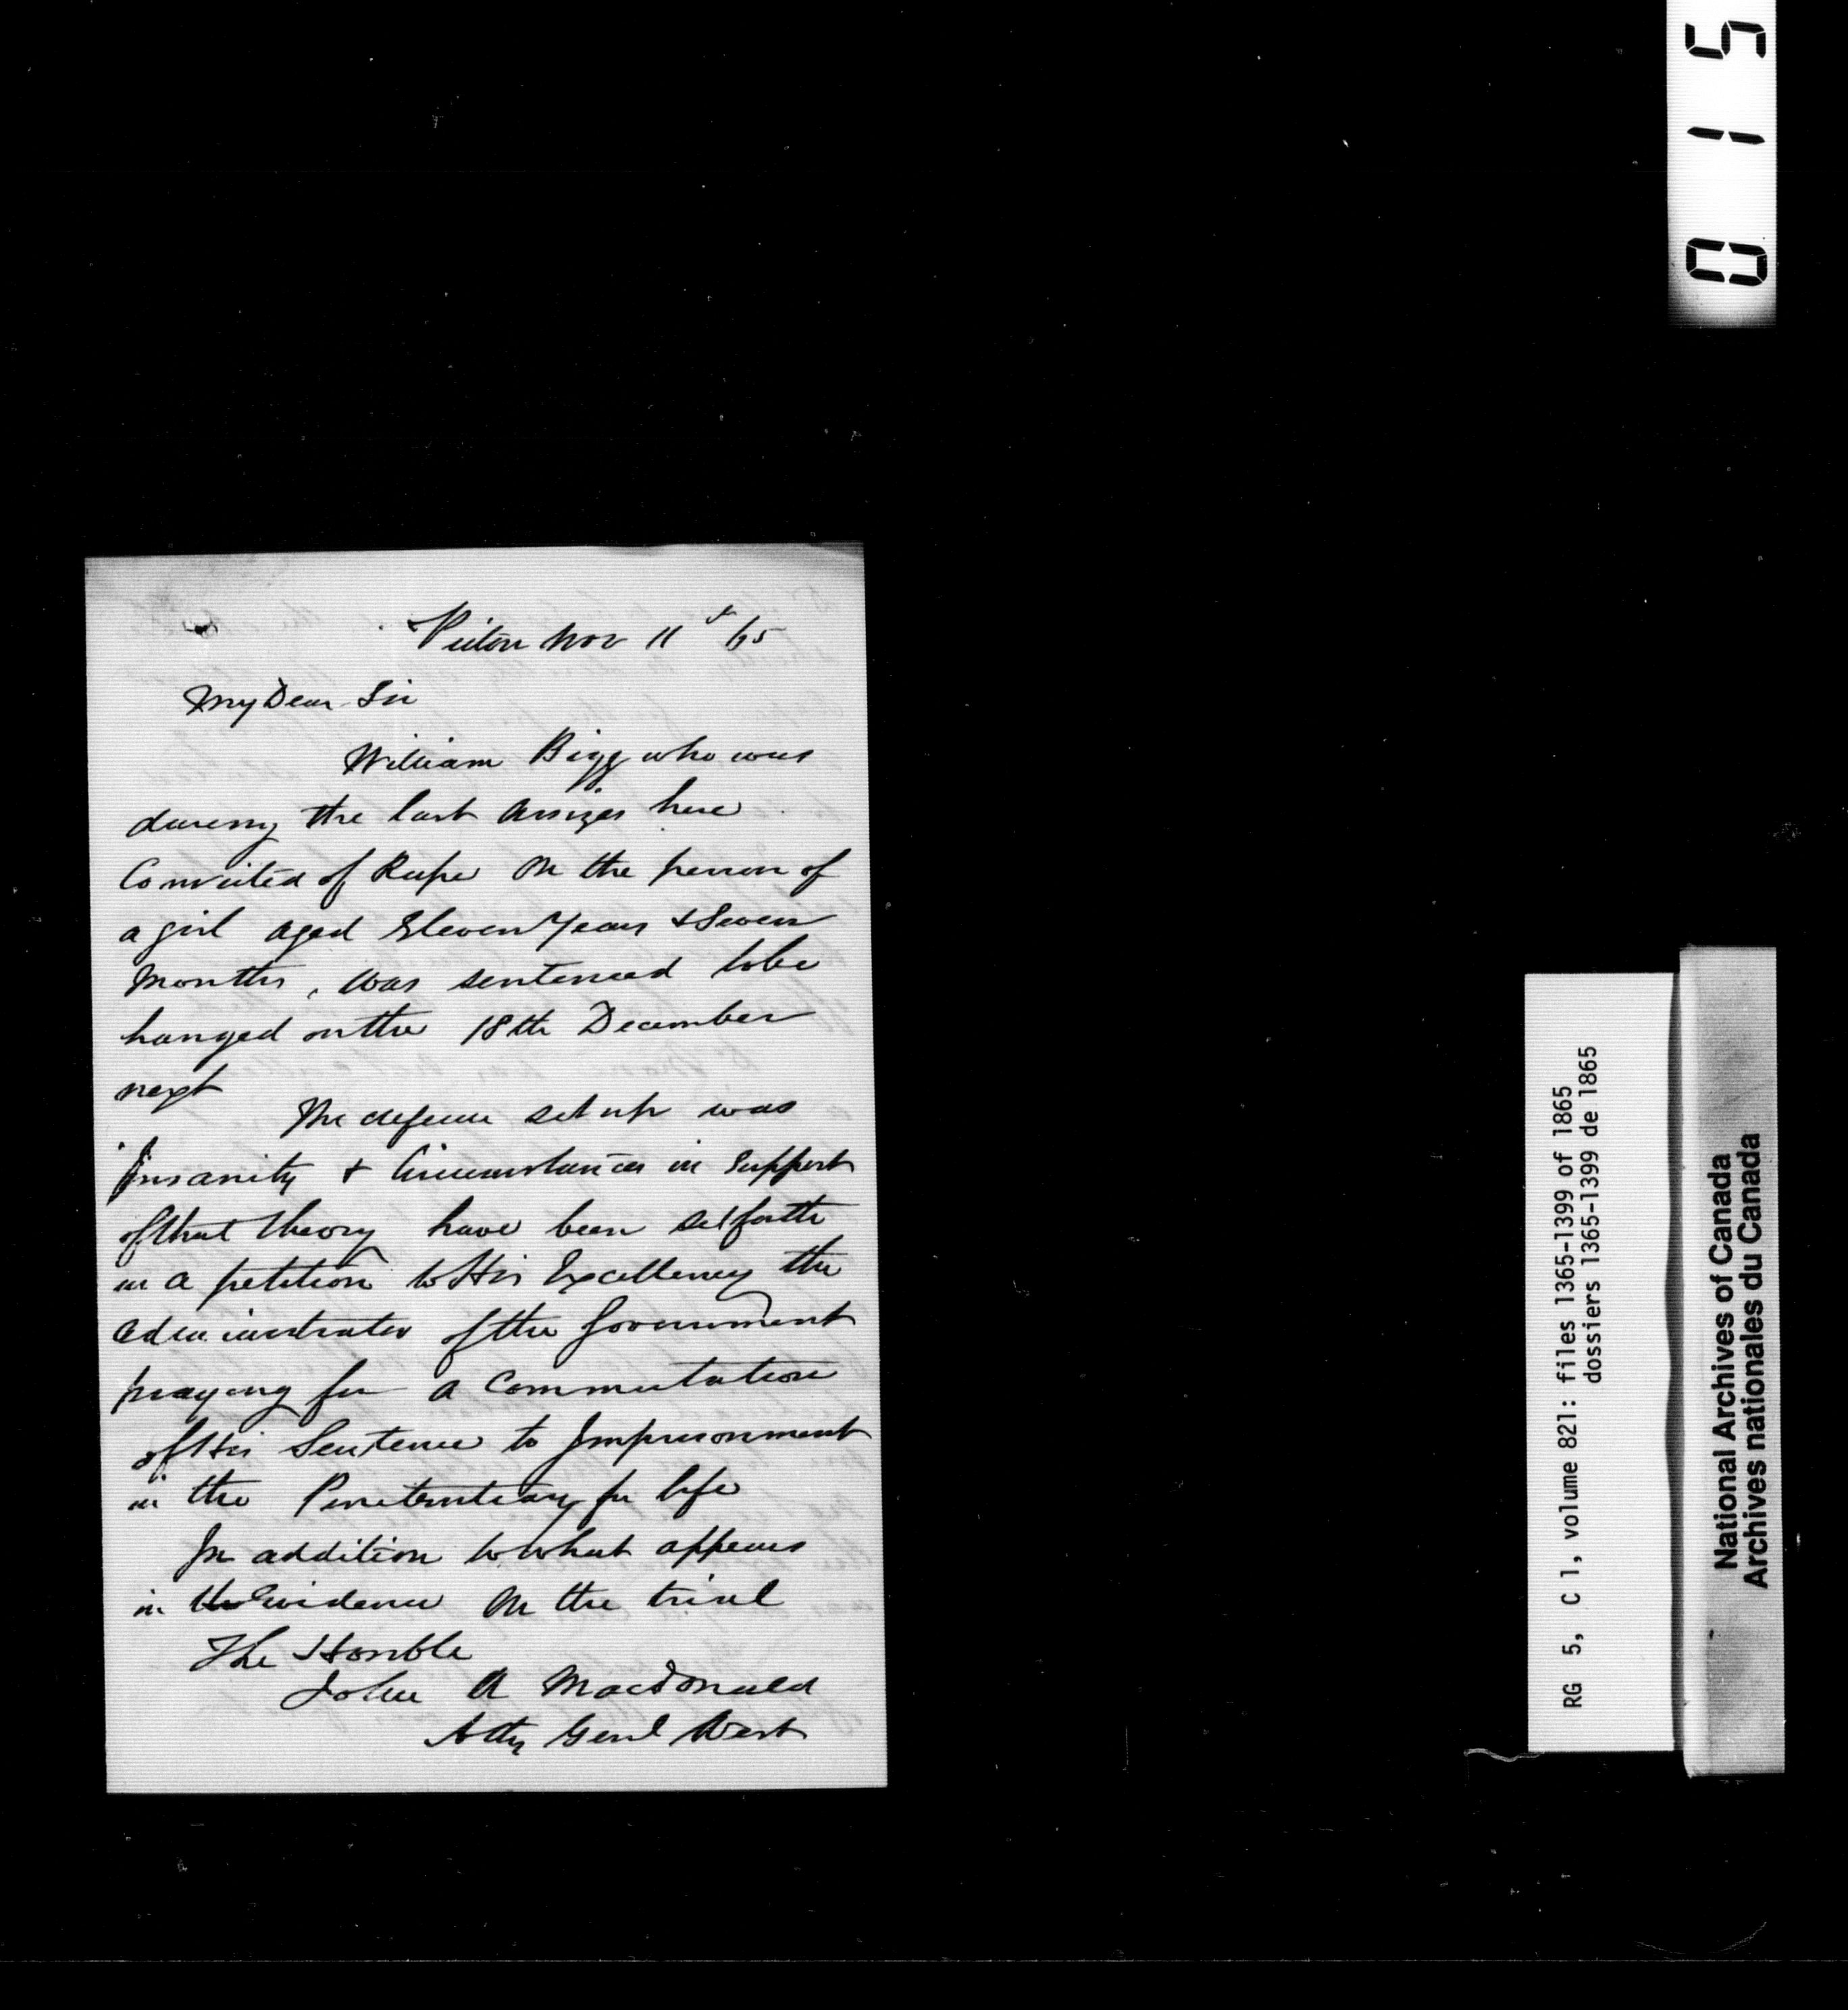 Picton Nov 11th /65
My Dear Sir
William Bigg who was
during the last Assizes here
Convicted of Rape on the person of
a girl aged Eleven Years & Seven
Months, was sentenced to be
hanged on the 18th December
next
The defence set up was
Insanity & Circumstances in support
of that theory have been set forth
in a petition to His Excellency the
Administrator of the Government
praying for a Commutation
of His Sentence to Imprisonment
in the Penitentiary for life
In addition to what appears
in the Evidence on the trial
The Honble
John A Macdonald
Atty Genl West
0 1 5
RG 5, C 1, volume 821: files 1365-1399 of 1865
dossiers 1365-1399 de 1865
National Archives of Canada
Archives nationales du Canada